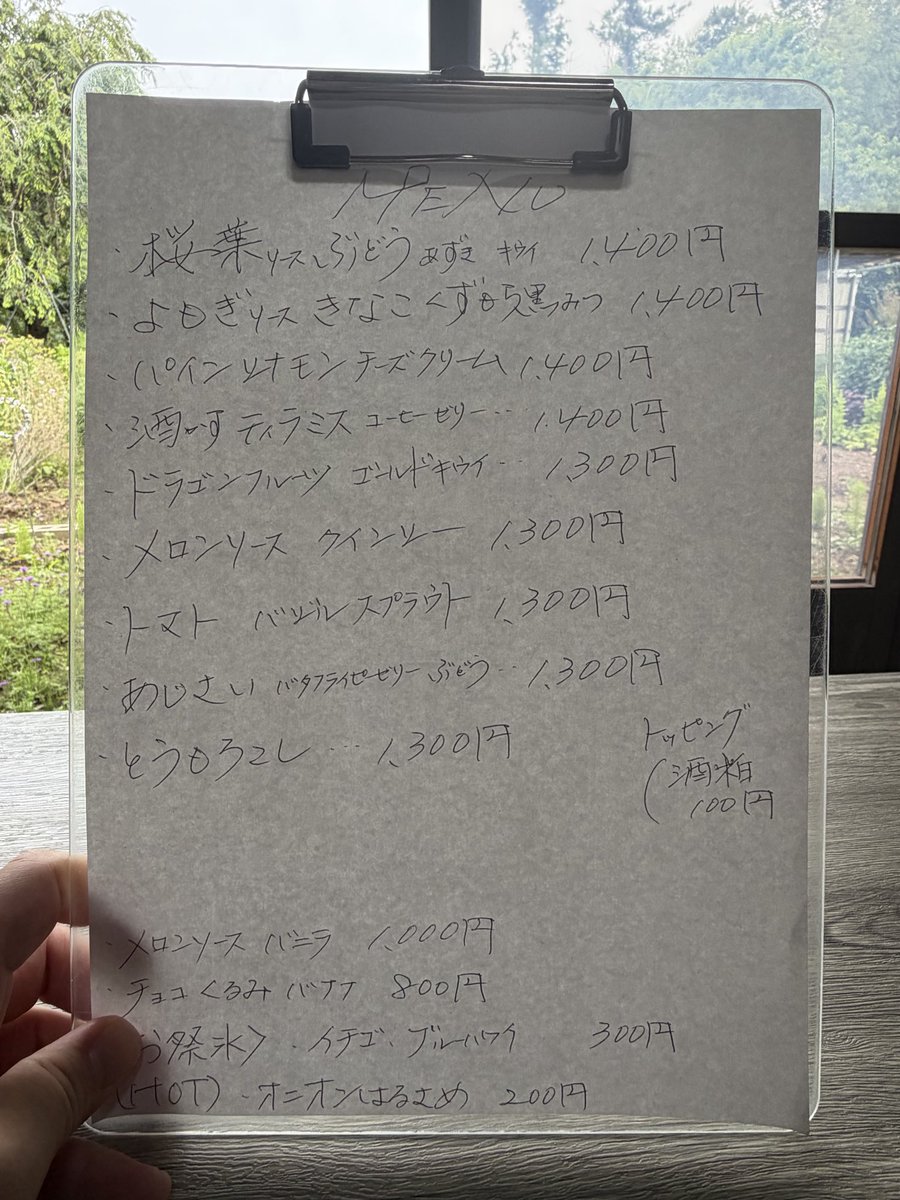 ・桜葉ソース ぶどう あずき キウイ 1,400円
・よもぎソース きなこ くずもち 黒みつ 1,400円
・パイン シナモン チーズクリーム 1,400円
・酒かす ティラミス コーヒーゼリー… 1,400円
・ドラゴンフルーツ ゴールドキウイ… 1,300円
・メロンソース クインシー 1,300円
・トマト バジル スプラウト 1,300円
・あじさい バタフライピーゼリー ぶどう… 1,300円
・とうもろこし … 1,300円
トッピング
(酒粕
100円
・メロンソース バニラ 1,000円
・チョコ くるみ バナナ 800円
お祭氷〉・イチゴ・ブルーハワイ 300円
(HOT)・オニオンはるさめ 200円